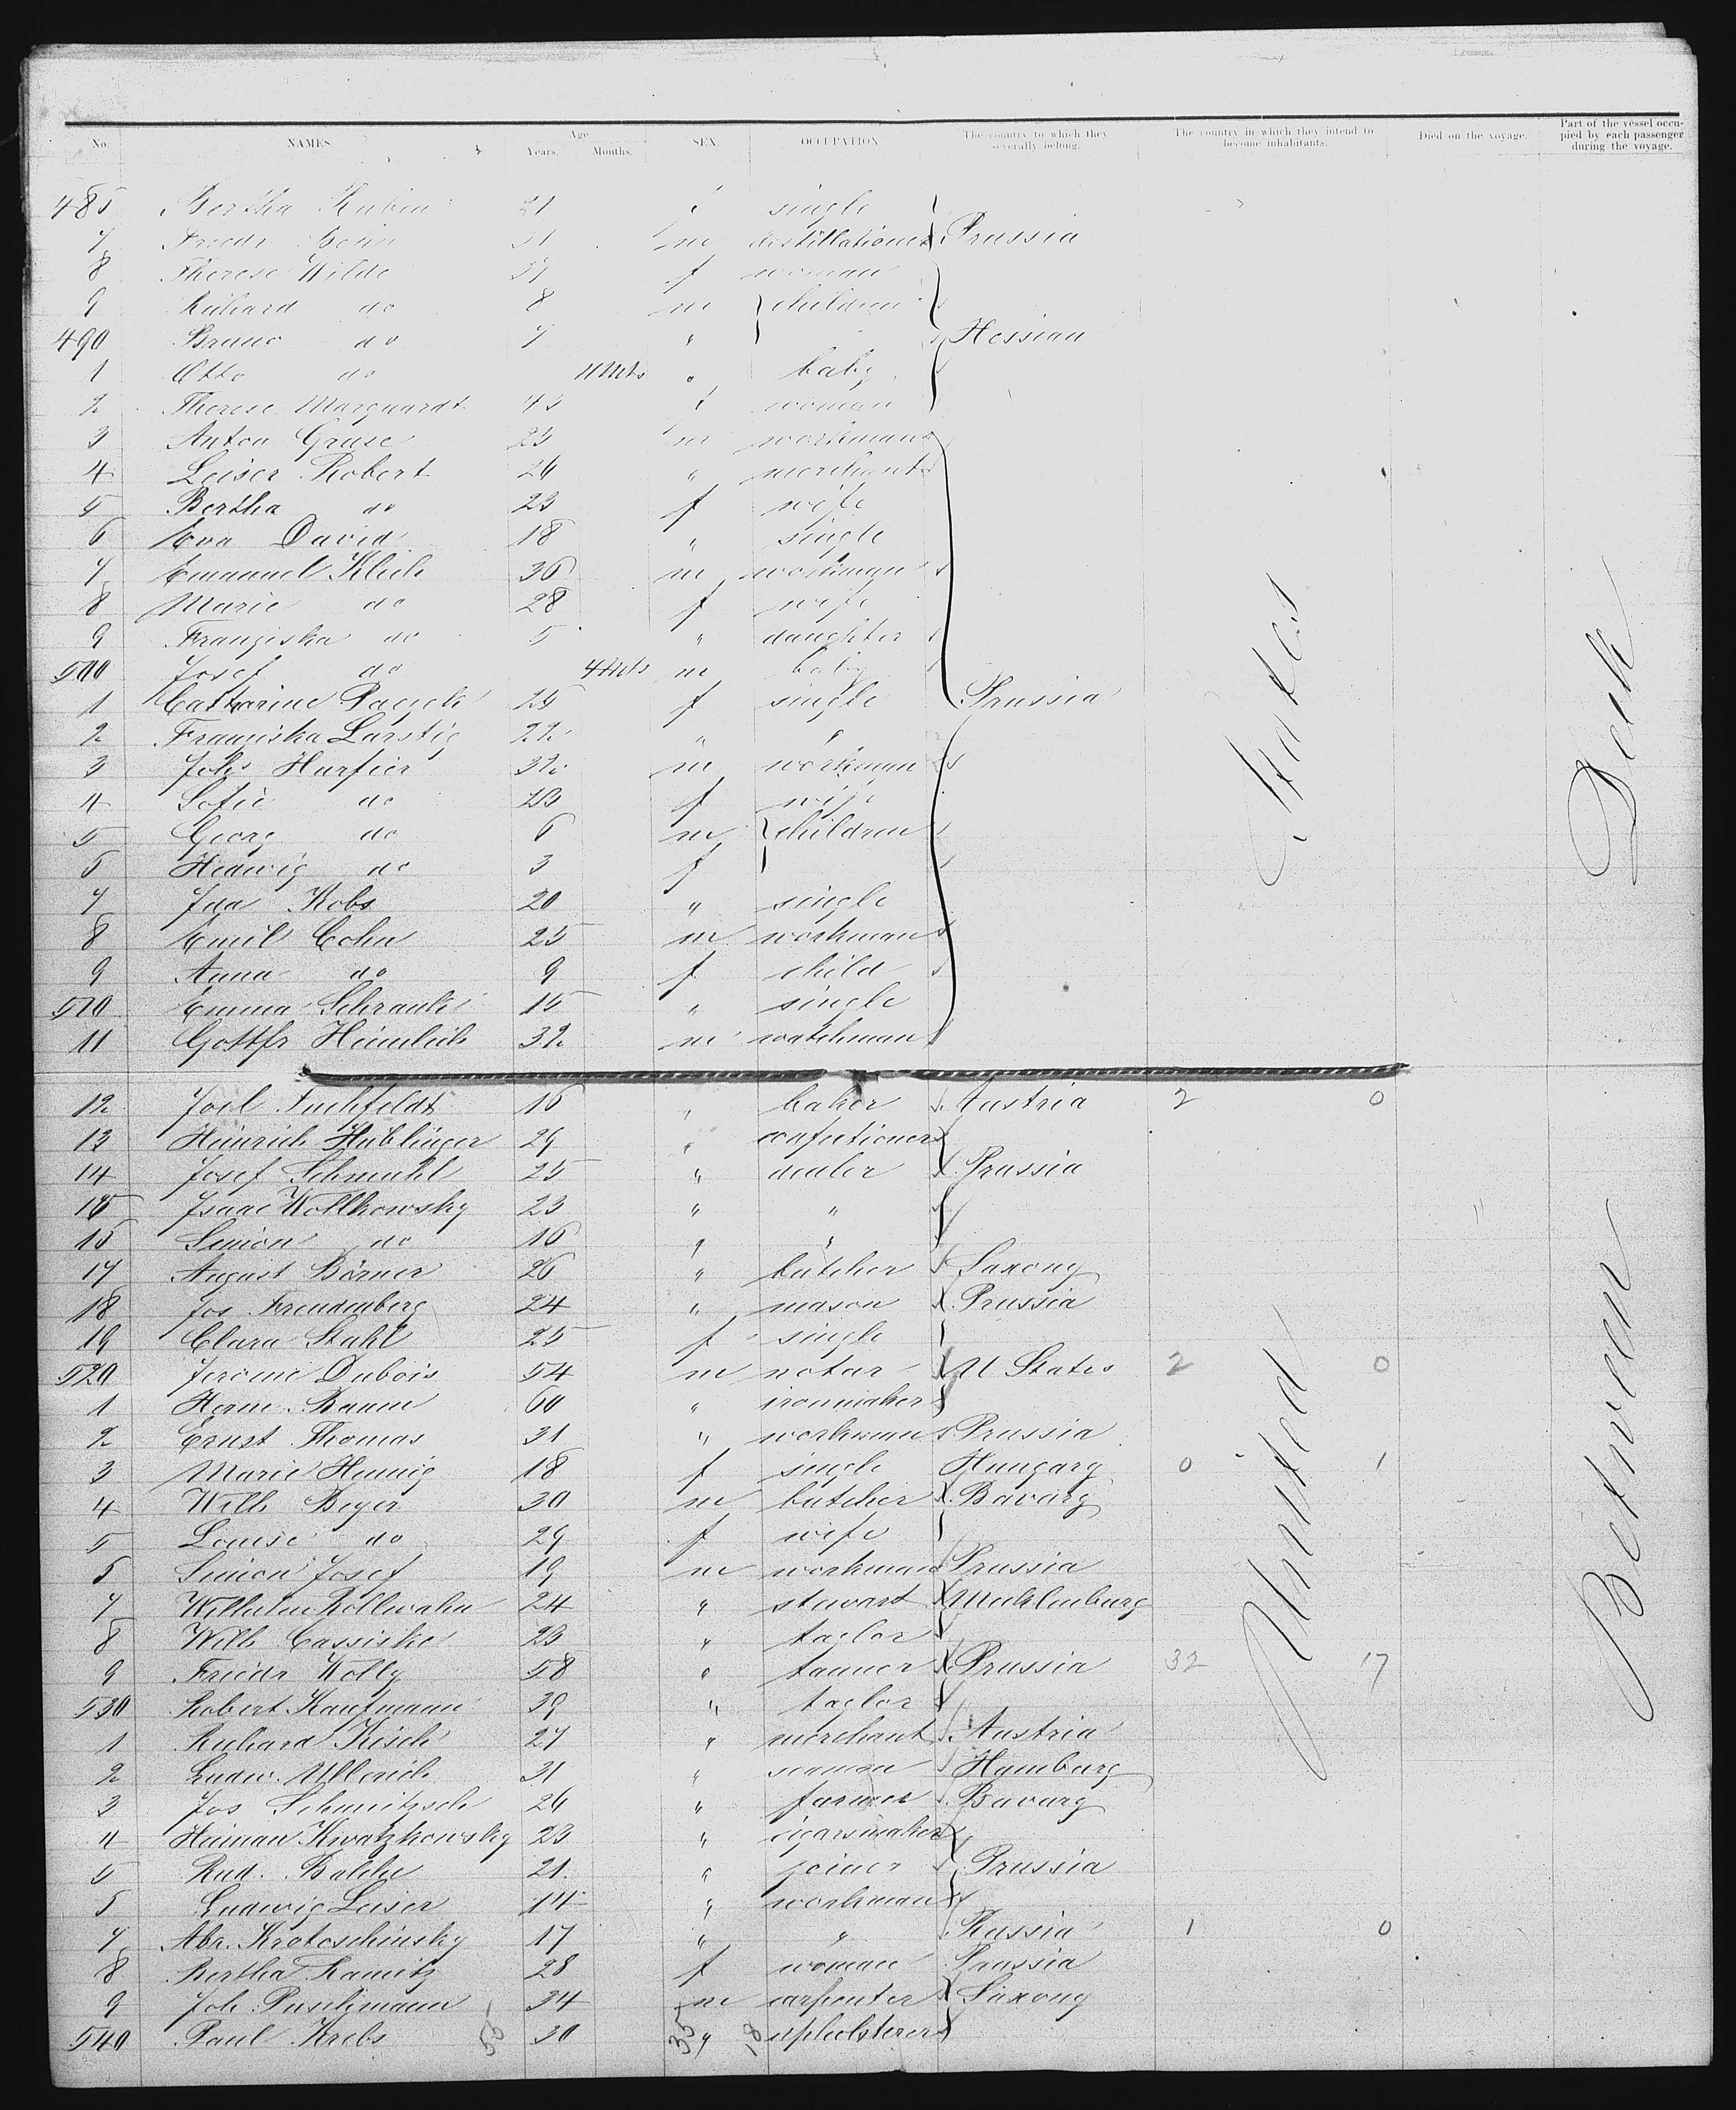 No. NAMES. Age Years. Months. SEX. OCCUPATION The country to which they severally belong. The country in which they intend to become inhabitants. Died on the voyage. Part of the vessel occupied by each passenger during the voyage.
485 Bertha Rubin 21 f single
7 Friedr 31 m destillationer Prussia
8 Therese Wilde 37 f woman
9 Richard do 8 m children
490 Bruno do 7 " Hessian
1 Otto do 11 Mts " baby
2 Therese Marquardt 43 f woman
3 Anton Gruse 23 m workman
4 Leiser Robert 26 " merchant
5 Bertha do 23 f wife
6 Eva David 18 " single
7 Emanuel Klich 36 m workman
8 Marie do 28 f wife
9 Franziska do 5 " daughter
500 Josef do 4 Mts m baby
1 Catharine 25 f single Prussia
2 Franziska Larstig 22 " "
3 Johs Harfier 32 m workman
4 Sofie do 23 f wife
5 Georg do 6 m children
6 Hedwig do 3 f
7 Ida Kobs 20 " single
8 Emil Cohn 25 m workman
9 Anna do 9 f child
510 Emma Schrank 15 " single
11 Gottfr Heimlich 32 m watchman
12 Joel Fuchfeldt 16 " baker Austria 2 0
13 Heinrich Hüblinger 29 " confectioner
14 Josef Schmuhl 25 " dealer Prussia
15 Isaac Wollkowsky 23 " "
16 Simon do 16 " "
17 August Börner 26 " butcher Saxony
18 Jos Freudenberg 24 " mason Prussia
19 Clara Stahl 25 f single
520 Jerome Dubois 54 m notar U States 2 0
1 Herm. Baum 60 " ironmaker
2 Ernst Thomas 31 " workman Prussia
3 Marie Hennig 18 f single Hungary 0 1
4 Wilh Beyer 30 m butcher Bavary
5 Louise do 29 f wife
6 Simon Josef 19 m workman Prussia
7 Wilhelm Rollwahn 24 " stewart Mecklenburg
8 Wilh Cassiske 23 " taylor
9 Friedr Wolly 58 " tanner Prussia 32 17
530 Robert Kaufmann 39 " taylor
1 Richard Kisch 27 " merchant Austria
2 Ludw. Ullerich 31 " seaman Hamburg
3 Jos Schmitzsch 26 " farmer Bavary
4 Heiman Kwatzkowsky 23 " cigarsmaker
5 Rud. Balcke 21 " joiner Prussia
6 Ludwig Leiser 14 " workman
7 Abr. Krotoschinsky 17 " " Russia 1 0
8 Bertha Kamitz 28 f woman Prussia
9 Joh. Puschmann 34 m carpenter Saxony
540 Paul Krebs 30 " upholsterer
55 35 18
United States
Between Deck